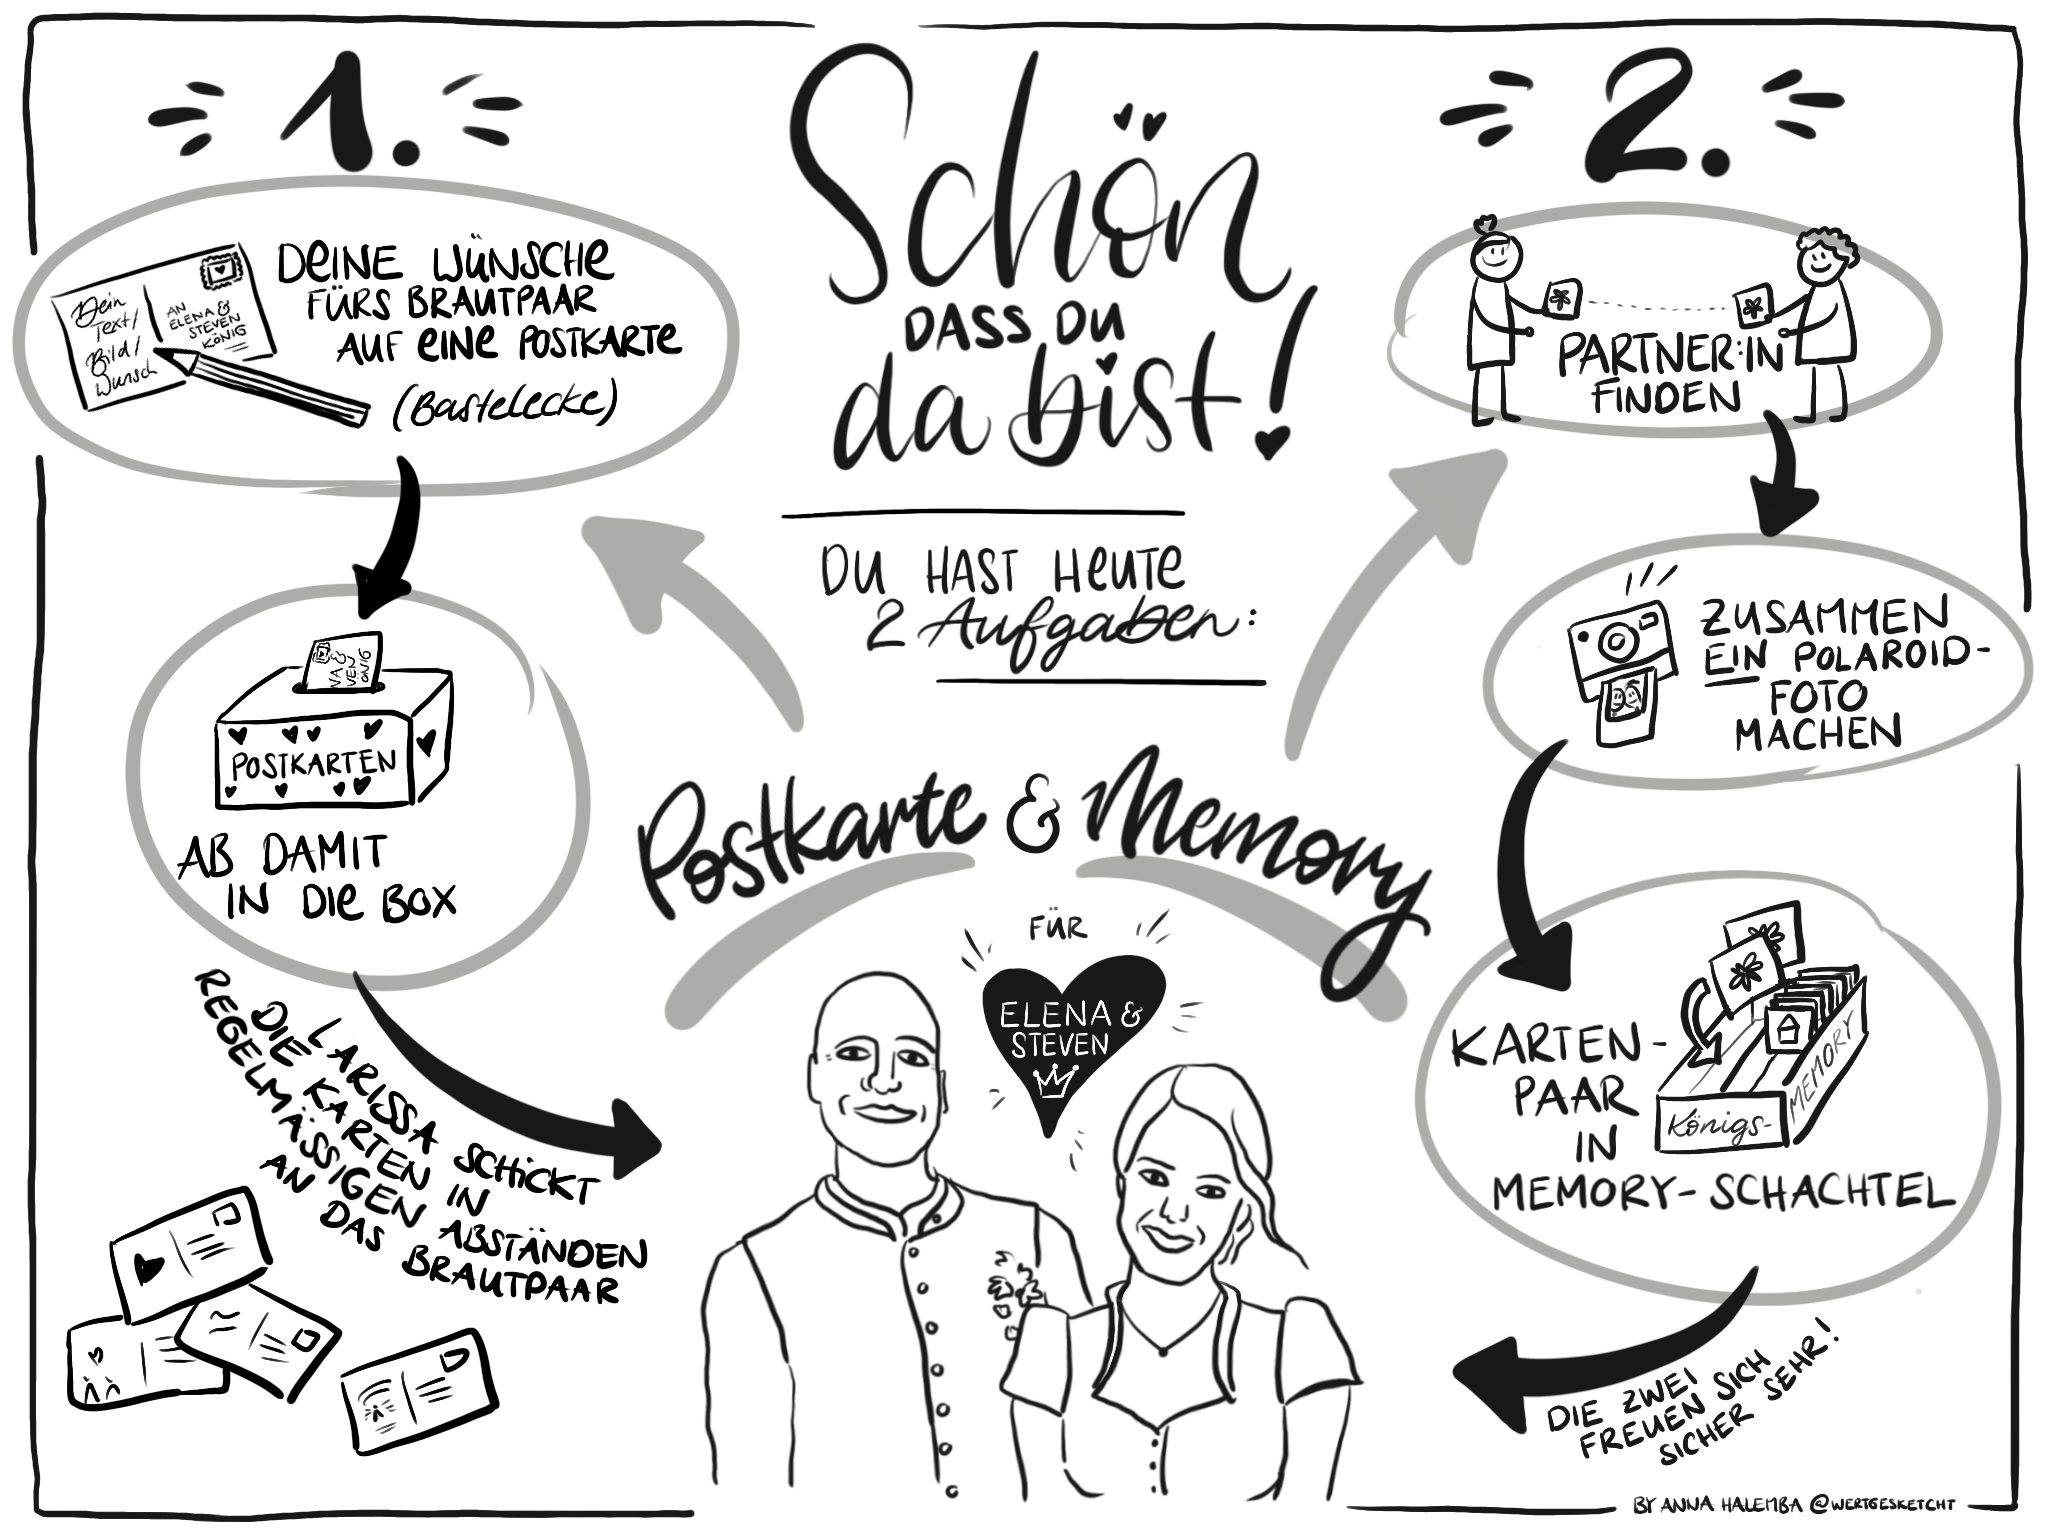 1.
DEINE WÜNSCHE
FÜRS BRAUTPAAR
AUF EINE POSTKARTE
(Bastelecke)
Dein
Text/
Bild/
Wunsch
AN
ELENA &
STEVEN
KÖNIG
POSTKARTEN
AB DAMIT
IN DIE BOX
LARISSA SCHICKT
DIE KARTEN IN
REGELMÄSSIGEN ABSTÄNDEN
AN DAS BRAUTPAAR
Schön
DASS DU
da bist!
DU HAST HEUTE
2 Aufgaben:
Postkarte & Memory
FÜR
ELENA &
STEVEN
2.
PARTNER:IN
FINDEN
ZUSAMMEN
EIN POLAROID-
FOTO
MACHEN
KARTEN-
PAAR
IN
MEMORY-SCHACHTEL
Königs-
MEMORY
DIE ZWEI
FREUEN SICH
SICHER SEHR!
BY ANNA HALEMBA @WERTGESKETCHT